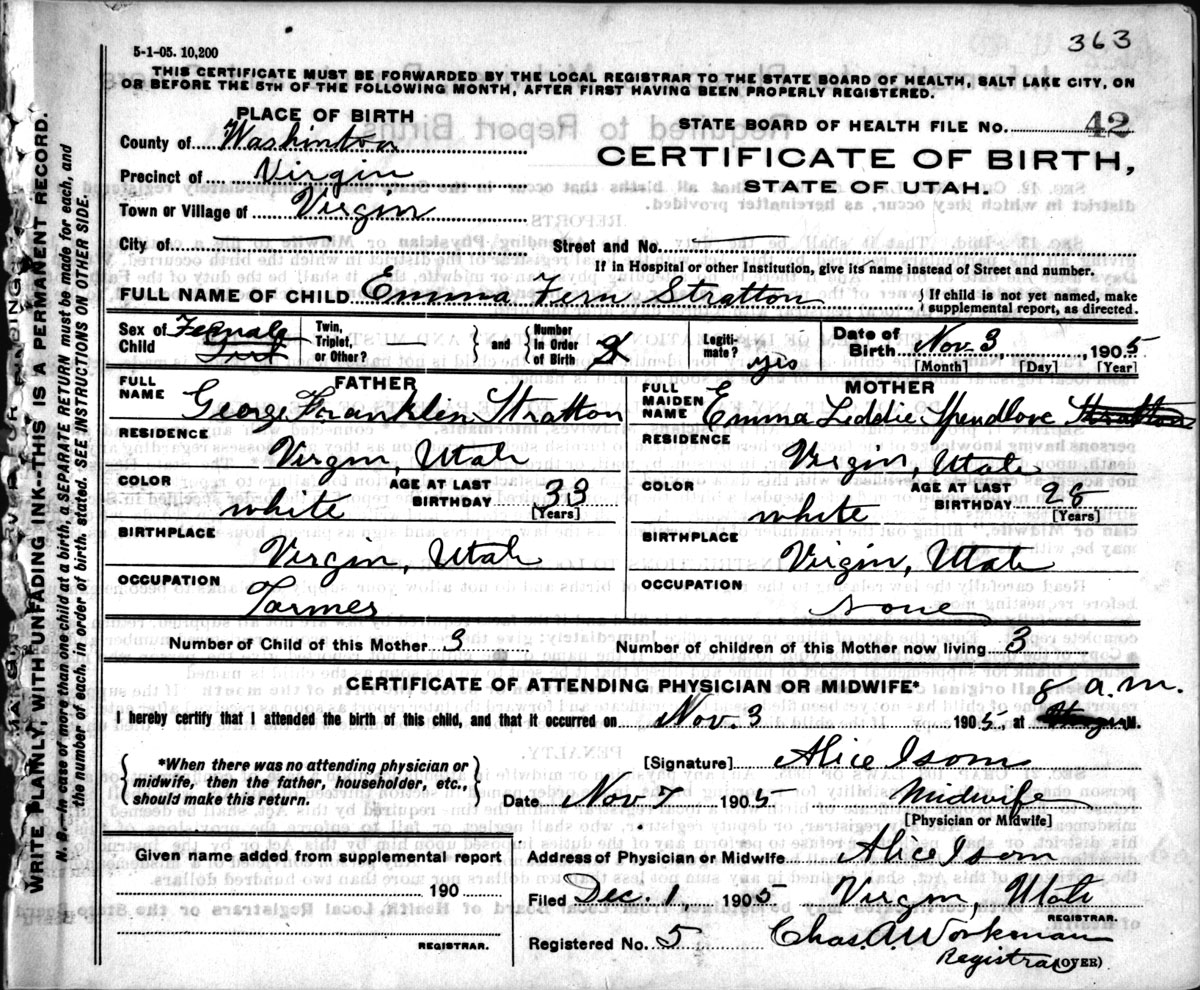 363
5-1-05. 10,200
THIS CERTIFICATE MUST BE FORWARDED BY THE LOCAL REGISTRAR TO THE STATE BOARD OF HEALTH, SALT LAKE CITY, ON
OR BEFORE THE 5TH OF THE FOLLOWING MONTH, AFTER FIRST HAVING BEEN PROPERLY REGISTERED.
PLACE OF BIRTH
County of Washinton
Precinct of Virgin
Town or Village of Virgin
STATE BOARD OF HEALTH FILE NO. 42
CERTIFICATE OF BIRTH,
STATE OF UTAH.
City of Street and No.
If in Hospital or other Institution, give its name instead of Street and number.
FULL NAME OF CHILD Emma Fern Stratton { If child is not yet named, make supplemental report, as directed.
Sex of Child Female Twin, Triplet, or Other? } and { Number in Order of Birth Legiti-mate? yes Date of Birth Nov. 3, 1905
[Month] [Day] [Year]
FATHER
FULL NAME George Franklin Stratton
RESIDENCE
Virgin, Utah
COLOR white AGE AT LAST BIRTHDAY 33
[Years]
BIRTHPLACE
Virgin, Utah
OCCUPATION
Farmer
MOTHER
FULL MAIDEN NAME Emma Leddie Spendlove Stratton
RESIDENCE
Virgin, Utah
COLOR white AGE AT LAST BIRTHDAY 28
[Years]
BIRTHPLACE
Virgin, Utah
OCCUPATION
None
Number of Child of this Mother 3 Number of children of this Mother now living 3
CERTIFICATE OF ATTENDING PHYSICIAN OR MIDWIFE*
I hereby certify that I attended the birth of this child, and that it occurred on Nov. 3 1905, at 8 a.m. M.
{ *When there was no attending physician or
midwife, then the father, householder, etc.,
should make this return. }
[Signature] Alice Isom
Date Nov 7 1905 Midwife
[Physician or Midwife]
Given name added from supplemental report
190
REGISTRAR.
Address of Physician or Midwife Alice Isom
Filed Dec. 1, 1905 Virgin, Utah
REGISTRAR.
Registered No. 5 Chas. A. Workman
Registrar (OVER)
WRITE PLAINLY, WITH UNFADING INK--THIS IS A PERMANENT RECORD.
N. B.--In case of more than one child at a birth, a SEPARATE RETURN must be made for each, and
the number of each, in order of birth, stated. SEE INSTRUCTIONS ON OTHER SIDE.